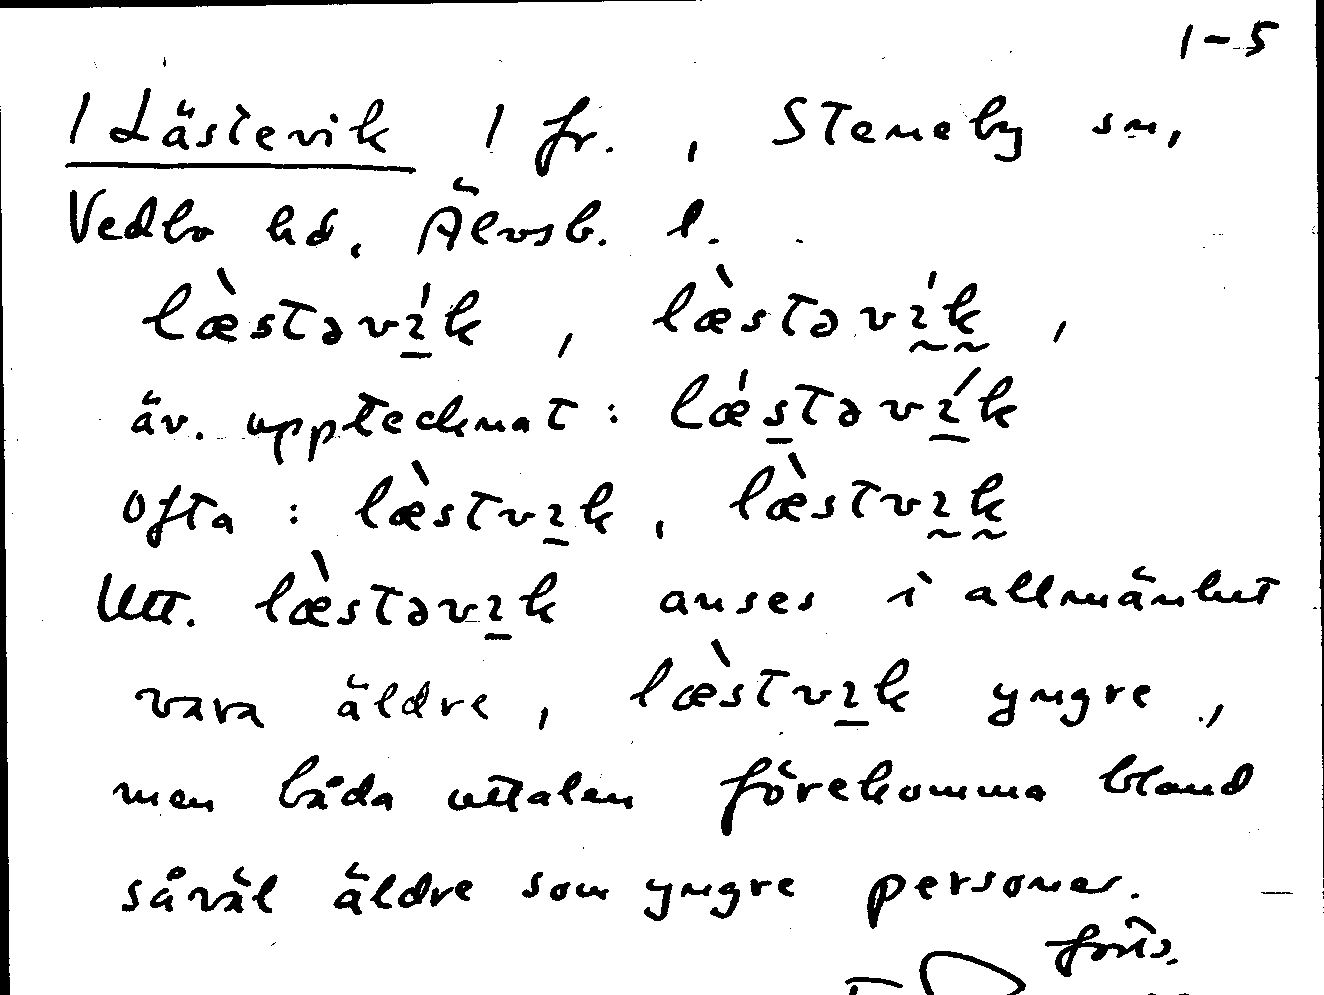 1-5
1 Lästevik 1 fr., Steneby sn,
Vedbo hd, Älvsb. l.
læ̀stəvı̱́k, læ̀stəvı̰́k̰,
äv. upptecknat: lǽs̱təvı̱́k
Ofta: læ̀stvı̱k, læ̀stvı̰k̰
Utt. læ̀stəvı̱k anses i allmänhet
vara äldre, læ̀stvı̱k yngre,
men båda uttalen förekomma bland
såväl äldre som yngre personer.
forts.